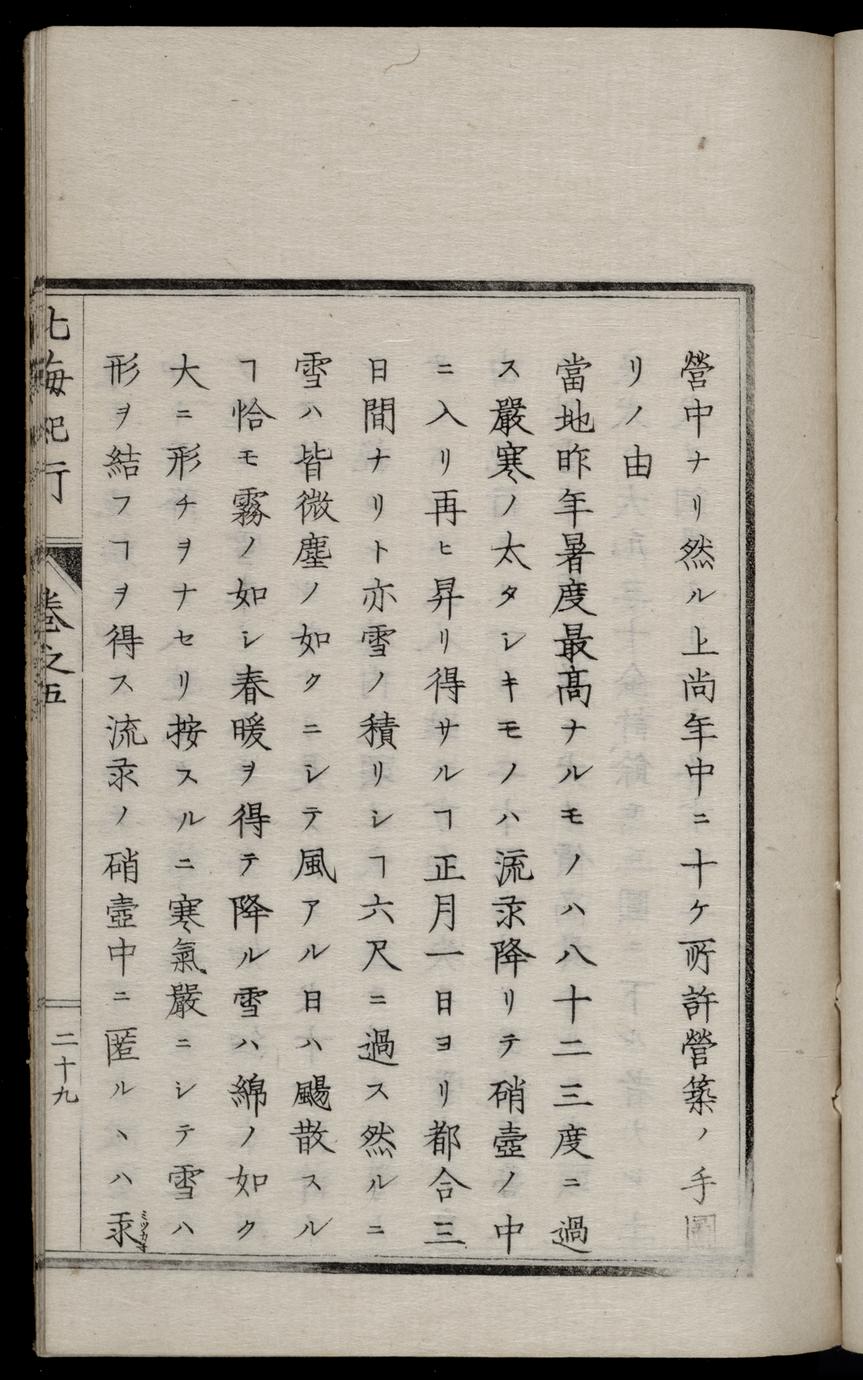 營中ナリ然ル上尚年中ニ十ケ所許營築ノ手圖
リノ由
當地昨年暑度最高ナルモノハ八十二三度ニ過
ス嚴寒ノ太タシキモノハ流汞降リテ硝壺ノ中
ニ入リ再ヒ昇リ得サルヿ正月一日ヨリ都合三
日間ナリト亦雪ノ積リシヿ六尺ニ過ス然ルニ
雪ハ皆微塵ノ如クニシテ風アル日ハ颺散スル
ヿ恰モ霧ノ如シ春暖ヲ得テ降ル雪ハ綿ノ如ク
大ニ形チヲナセリ按スルニ寒氣嚴ニシテ雪ハ
形ヲ結フヿヲ得ス流汞ノ硝壺中ニ匿ルヽハ汞
ミツカネ
北海紀行
卷之五
二十九